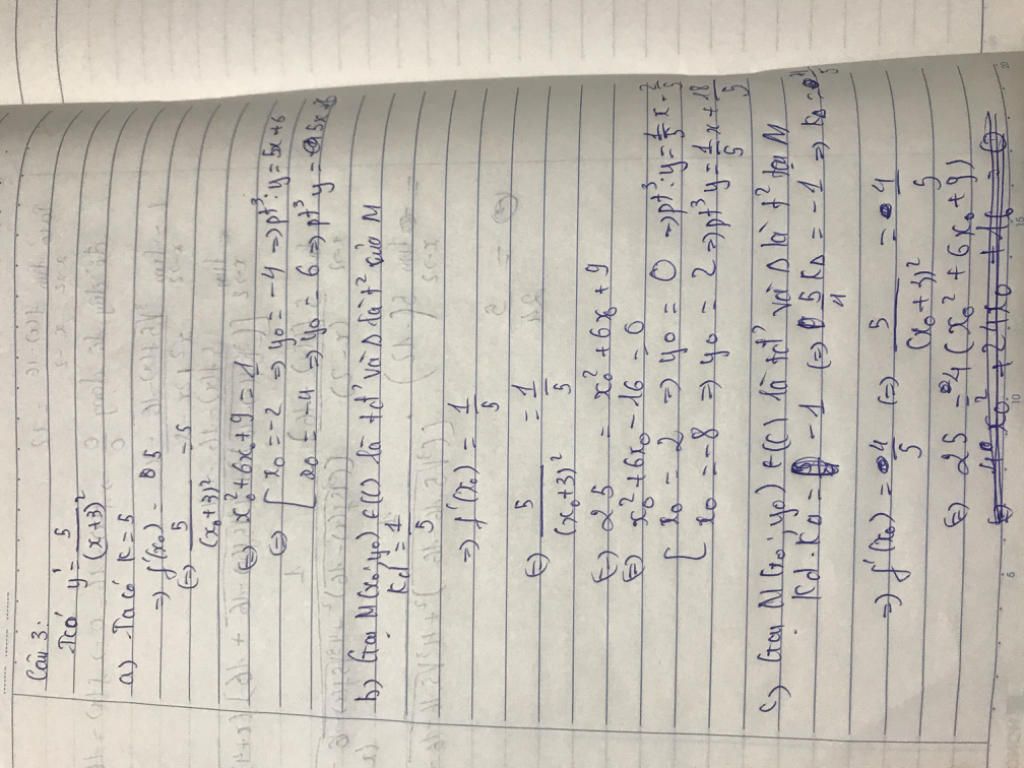 Câu 3:
Tcó y' = 5/(x+3)²
a) Ta có K = 5
=> f'(x₀) = 5
(=) 5/(x₀+3)² = 5
(=) x₀² + 6x₀ + 9 = 1
(=) [ x₀ = -2 => y₀ = -4 => pt³: y = 5x + 6
[ x₀ = -4 => y₀ = 6 => pt³ y = 5x
b) Gọi M(x₀; y₀) ∈ (C) là tđ³ và Δ là t² M
Kd = 1/5
=> f'(x₀) = 1/5
(=) 5/(x₀+3)² = 1/5
(=) 25 = x₀² + 6x₀ + 9
(=) x₀² + 6x₀ - 16 = 0
[ x₀ = 2 => y₀ = 0 => pt³: y = 1/5 x - 2/5
[ x₀ = -8 => y₀ = 2 => pt³ y = 1/5 x + 18/5
c) Gọi M(x₀; y₀) ∈ (C) là tđ³ và Δ là t² tại M
Kd . KΔ = -1 (=) 5/4 KΔ = -1 => KΔ = 4/5
=> f'(x₀) = 4/5 (=) 5/(x₀+3)² = 4/5
(=) 25 = 4(x₀² + 6x₀ + 9)